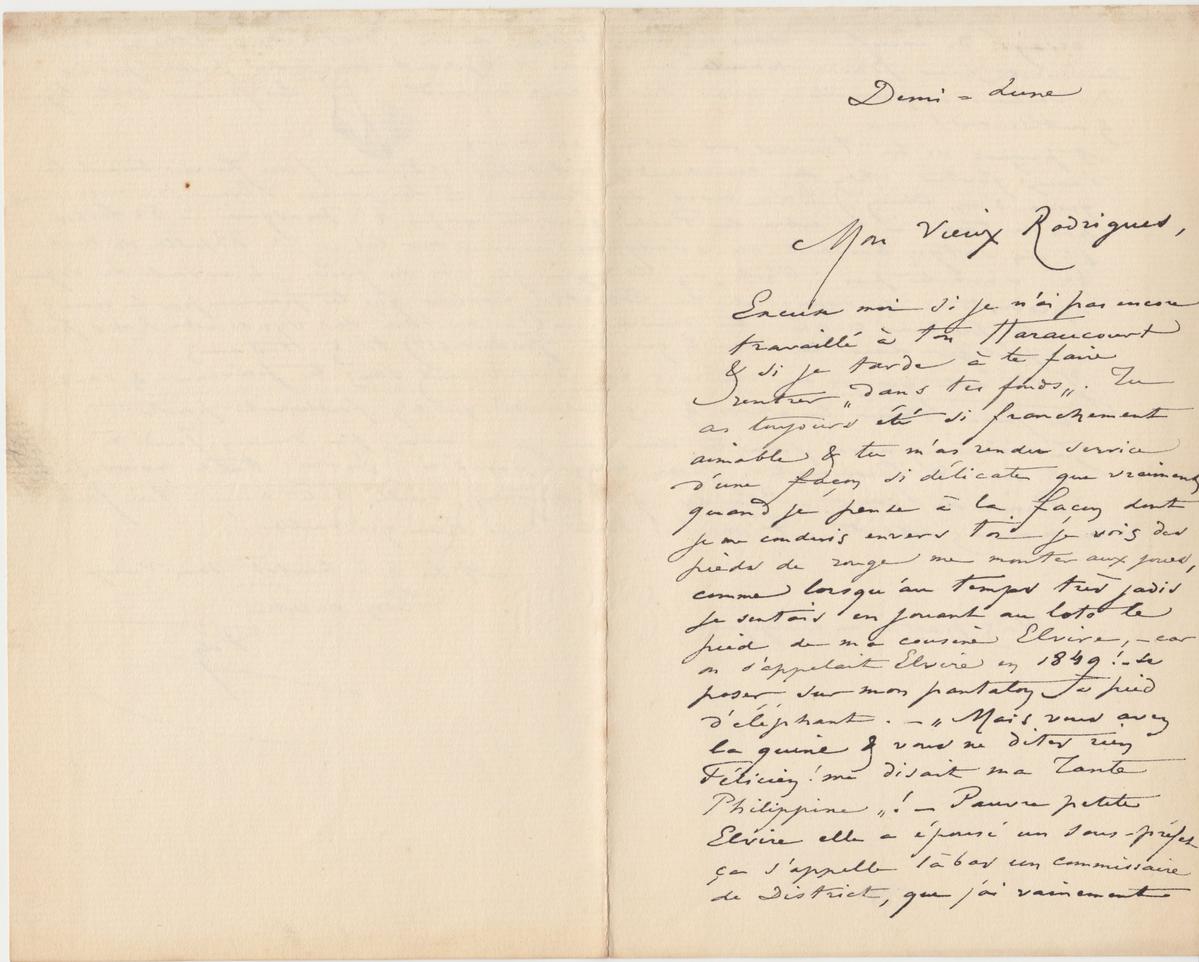 Demi = Lune
Mon Vieux Rodrigues,
Excuse moi si je n'ai pas encore
travaillé à ton Haraucourt
& si je tarde à te faire
rentrer „dans tes fonds„. Tu
as toujours été si franchement
aimable & tu m'as rendu service
d'une façon si délicate que vraiment
quand je pense à la façon dont
je me conduis envers toi je vois des
pieds de rouge me monter aux joues,
comme lorsqu'au temps très jadis
je sentais en jouant au loto le
pied de ma cousine Elvire, – car
on s'appelait Elvire en 1849! – se
poser sur mon pantalon à pied
d'éléphant. – „Mais vous avez
la quine & vous ne dites rien
Félicien! me disait ma Tante
Philippine „! – Pauvre petite
Elvire elle a épousé un sous-préfet
ça s'appelle là bas un commissaire
de District, que j'ai vainement